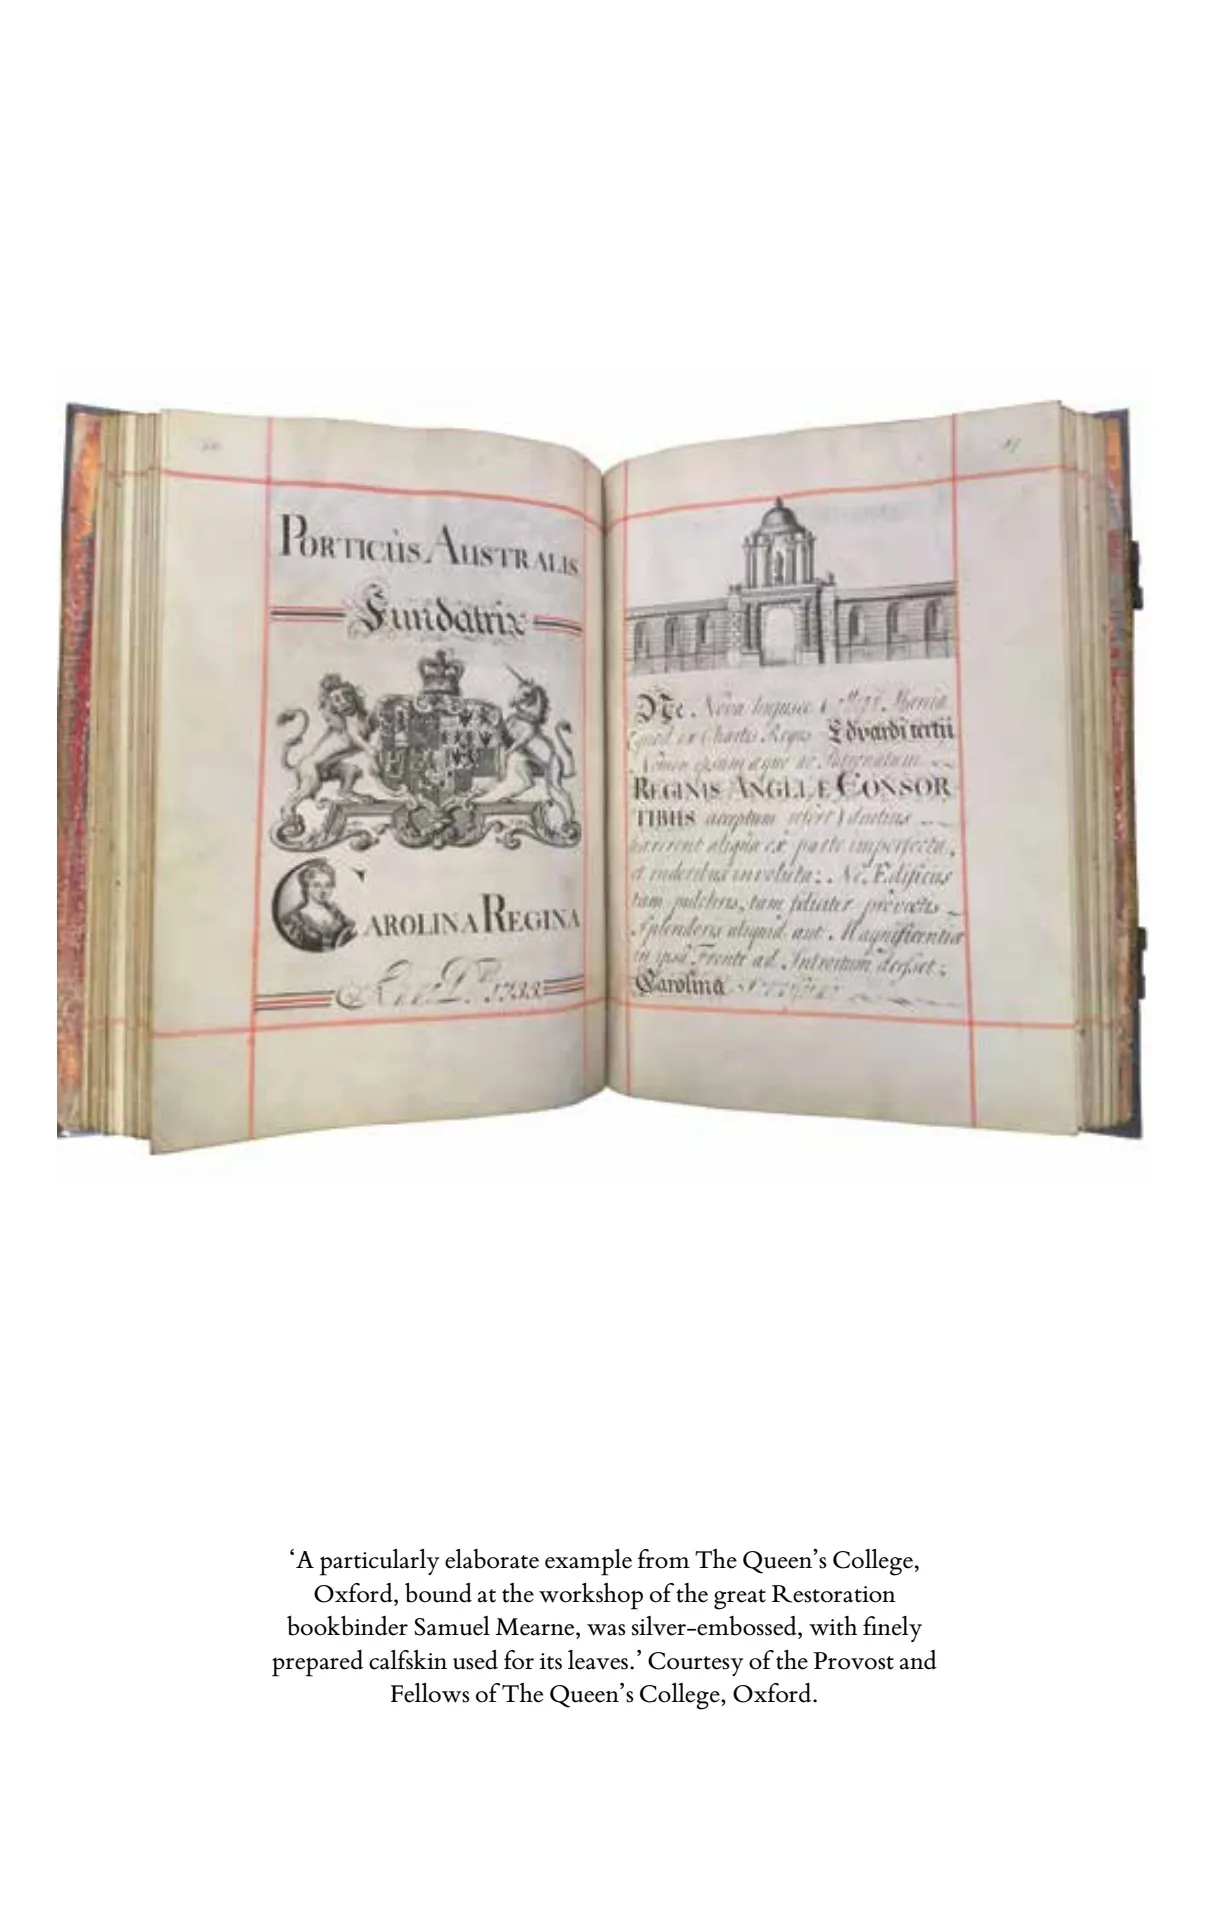 PORTICUS AUSTRALIS
Fundatrix
CAROLINA REGINA
1733
Ne Nova hujusce
Edvardi tertii
REGINIS ANGLIÆ CONSOR
TIBUS acceptum refert
aliqua ex parte imperfecta,
et ruderibus involuta: Ne Ædificiis
tam pulchris, tam feliciter provectis
Splendoris aliquid aut Magnificentiæ
in ipsa Fronte ad Introitum deesset:
Carolina
‘A particularly elaborate example from The Queen’s College,
Oxford, bound at the workshop of the great Restoration
bookbinder Samuel Mearne, was silver-embossed, with finely
prepared calfskin used for its leaves.’ Courtesy of the Provost and
Fellows of The Queen’s College, Oxford.